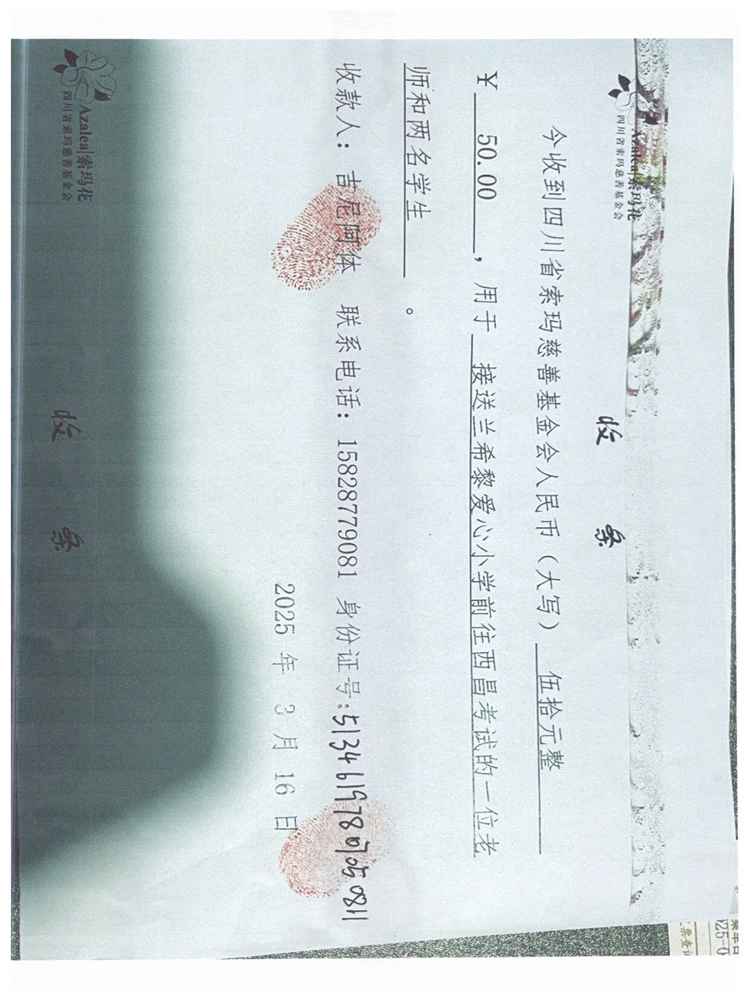 Azalea|索玛花
四川省索玛慈善基金会
收 条
今收到四川省索玛慈善基金会人民币（大写） 伍拾元整
¥ 50.00 ，用于 接送兰希黎爱心小学前往西昌考试的一位老
师和两名学生 。
收款人：吉尼阿体 联系电话：15828779081 身份证号:
2025 年 3 月 16 日
Azalea|索玛花
四川省索玛慈善基金会
收 条